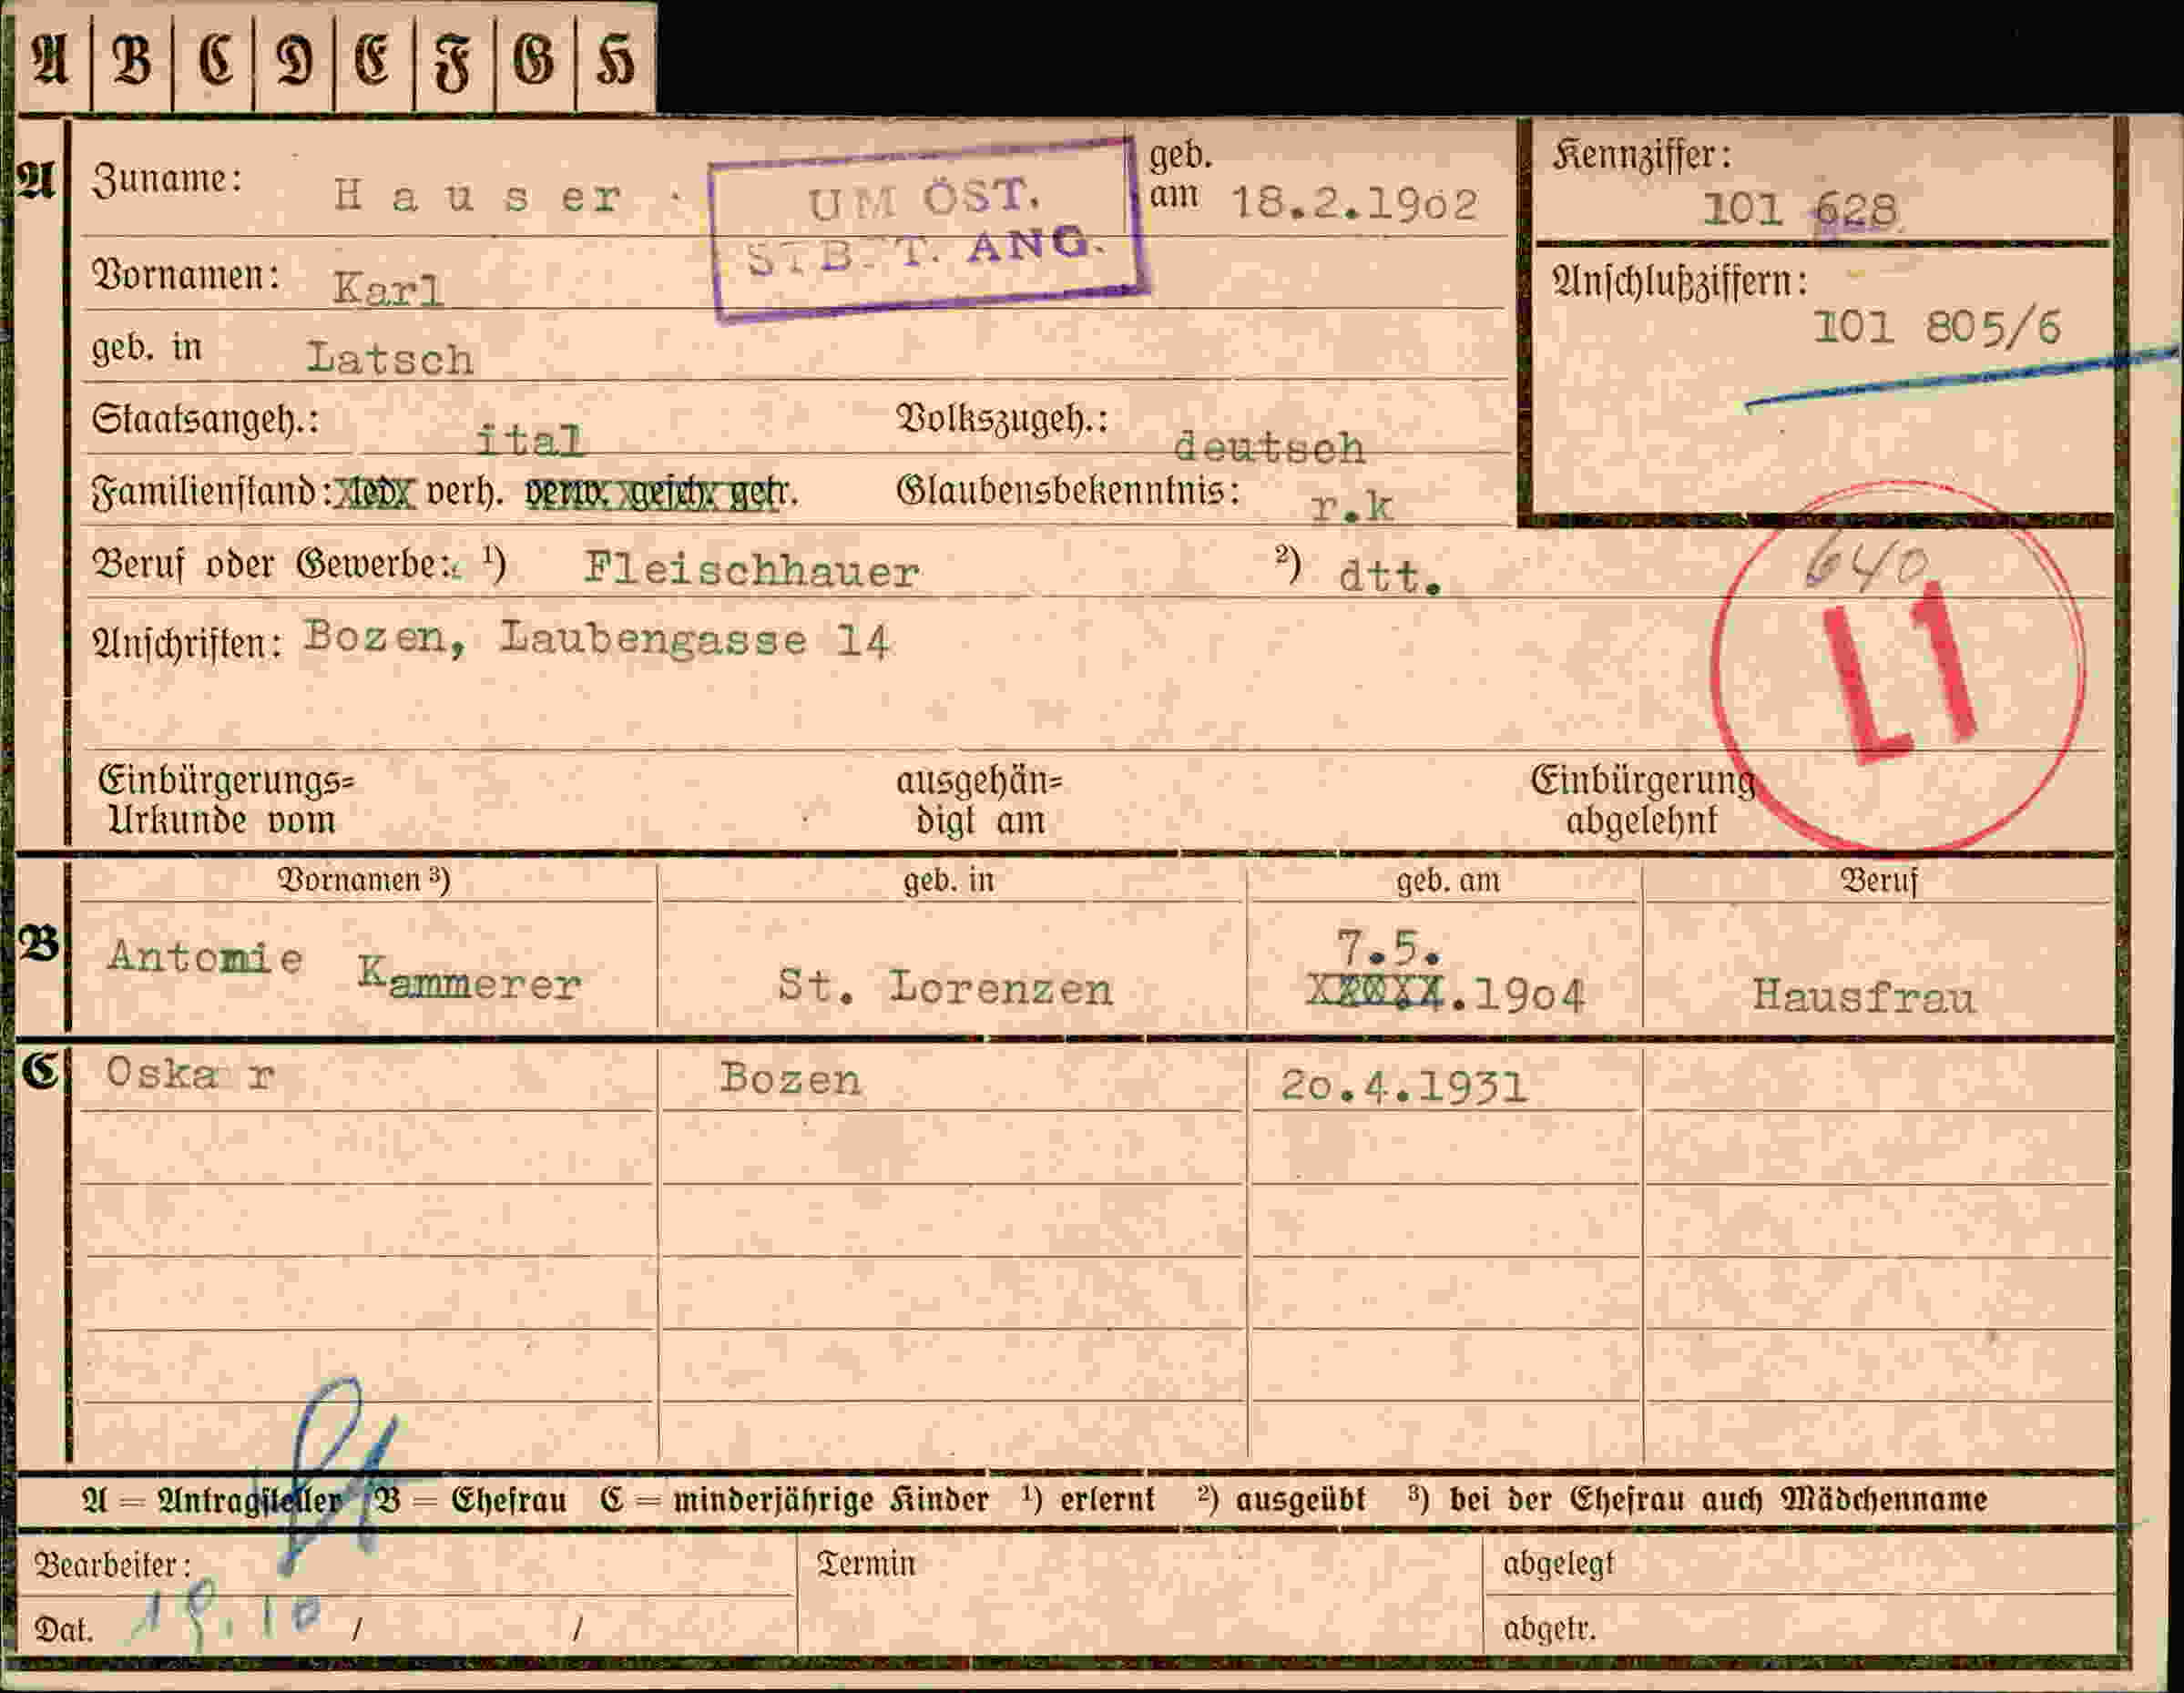 A B C D E F G H
A Zuname: Hauser
UM ÖST.
ANG.
geb.
am 18.2.1902
Kennziffer:
101 628
Vornamen: Karl
Anschlußziffern:
101 805/6
geb. in Latsch
Staatsangeh.: ital Volkszugeh.: deutsch
Familienstand: verh. Glaubensbekenntnis: r.k
640
Beruf oder Gewerbe: 1) Fleischhauer 2) dtt.
L1
Anschriften: Bozen, Laubengasse 14
Einbürgerungs= ausgehän= Einbürgerung
Urkunde vom digt am abgelehnt
Vornamen 3) geb. in geb. am Beruf
7.5.
B Antonie Kammerer St. Lorenzen .1904 Hausfrau
C Oska r Bozen 20.4.1931
A = Antragsteller B = Ehefrau C = minderjährige Kinder 1) erlernt 2) ausgeübt 3) bei der Ehefrau auch Mädchenname
Bearbeiter: Termin abgelegt
Dat. 19.10 / / abgetr.